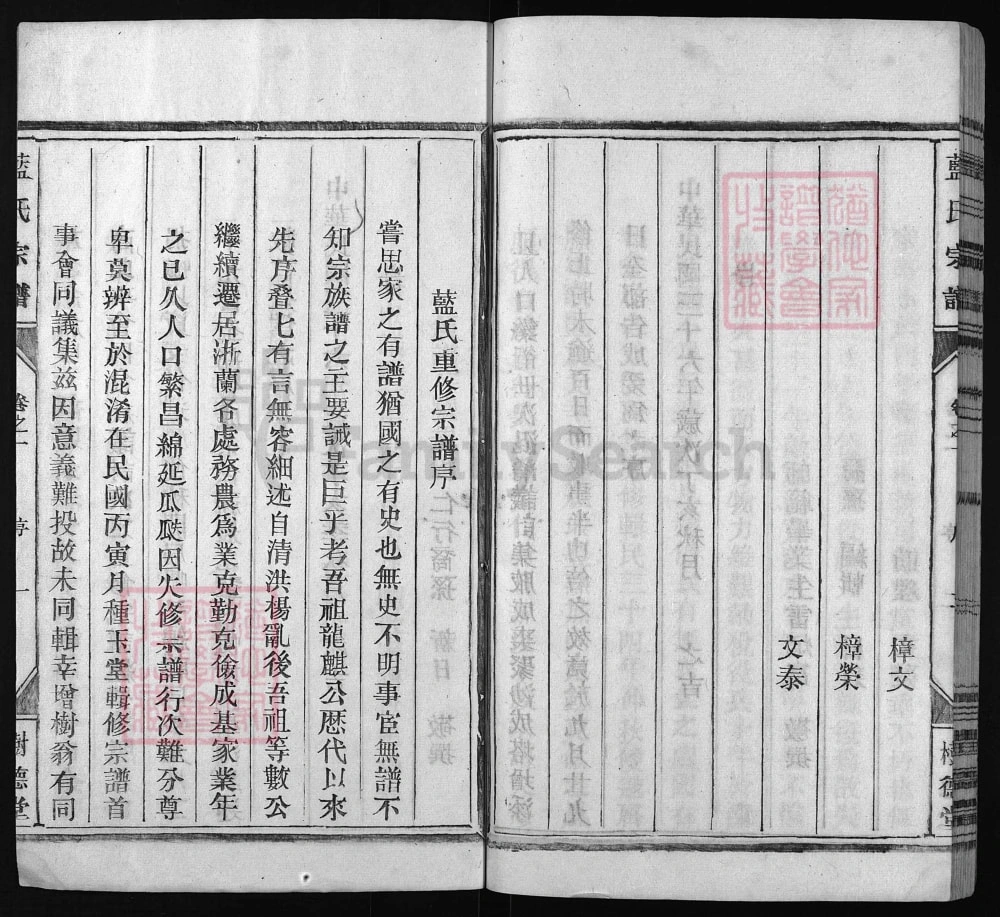 藍氏宗譜
樟文
樟榮
文泰
藍氏重修宗譜序
嘗思家之有譜猶國之有史也無史不明事宦無譜不
知宗族譜之主要誠是巨乎考吾祖龍麒公歷代以來
先序叠七有言無容細述自清洪楊亂後吾祖等數公
繼續遷居浙蘭各處務農爲業克勤克儉成基家業年
之已久人口繁昌綿延瓜瓞因失修宗譜行次難分尊
卑莫辨至於混淆在民國丙寅月種玉堂輯修宗譜首
事會同議集兹因意義難投故未同輯幸曾樹翁有同
藍氏宗譜
卷之一
序
一
樹德堂
FamilySearch